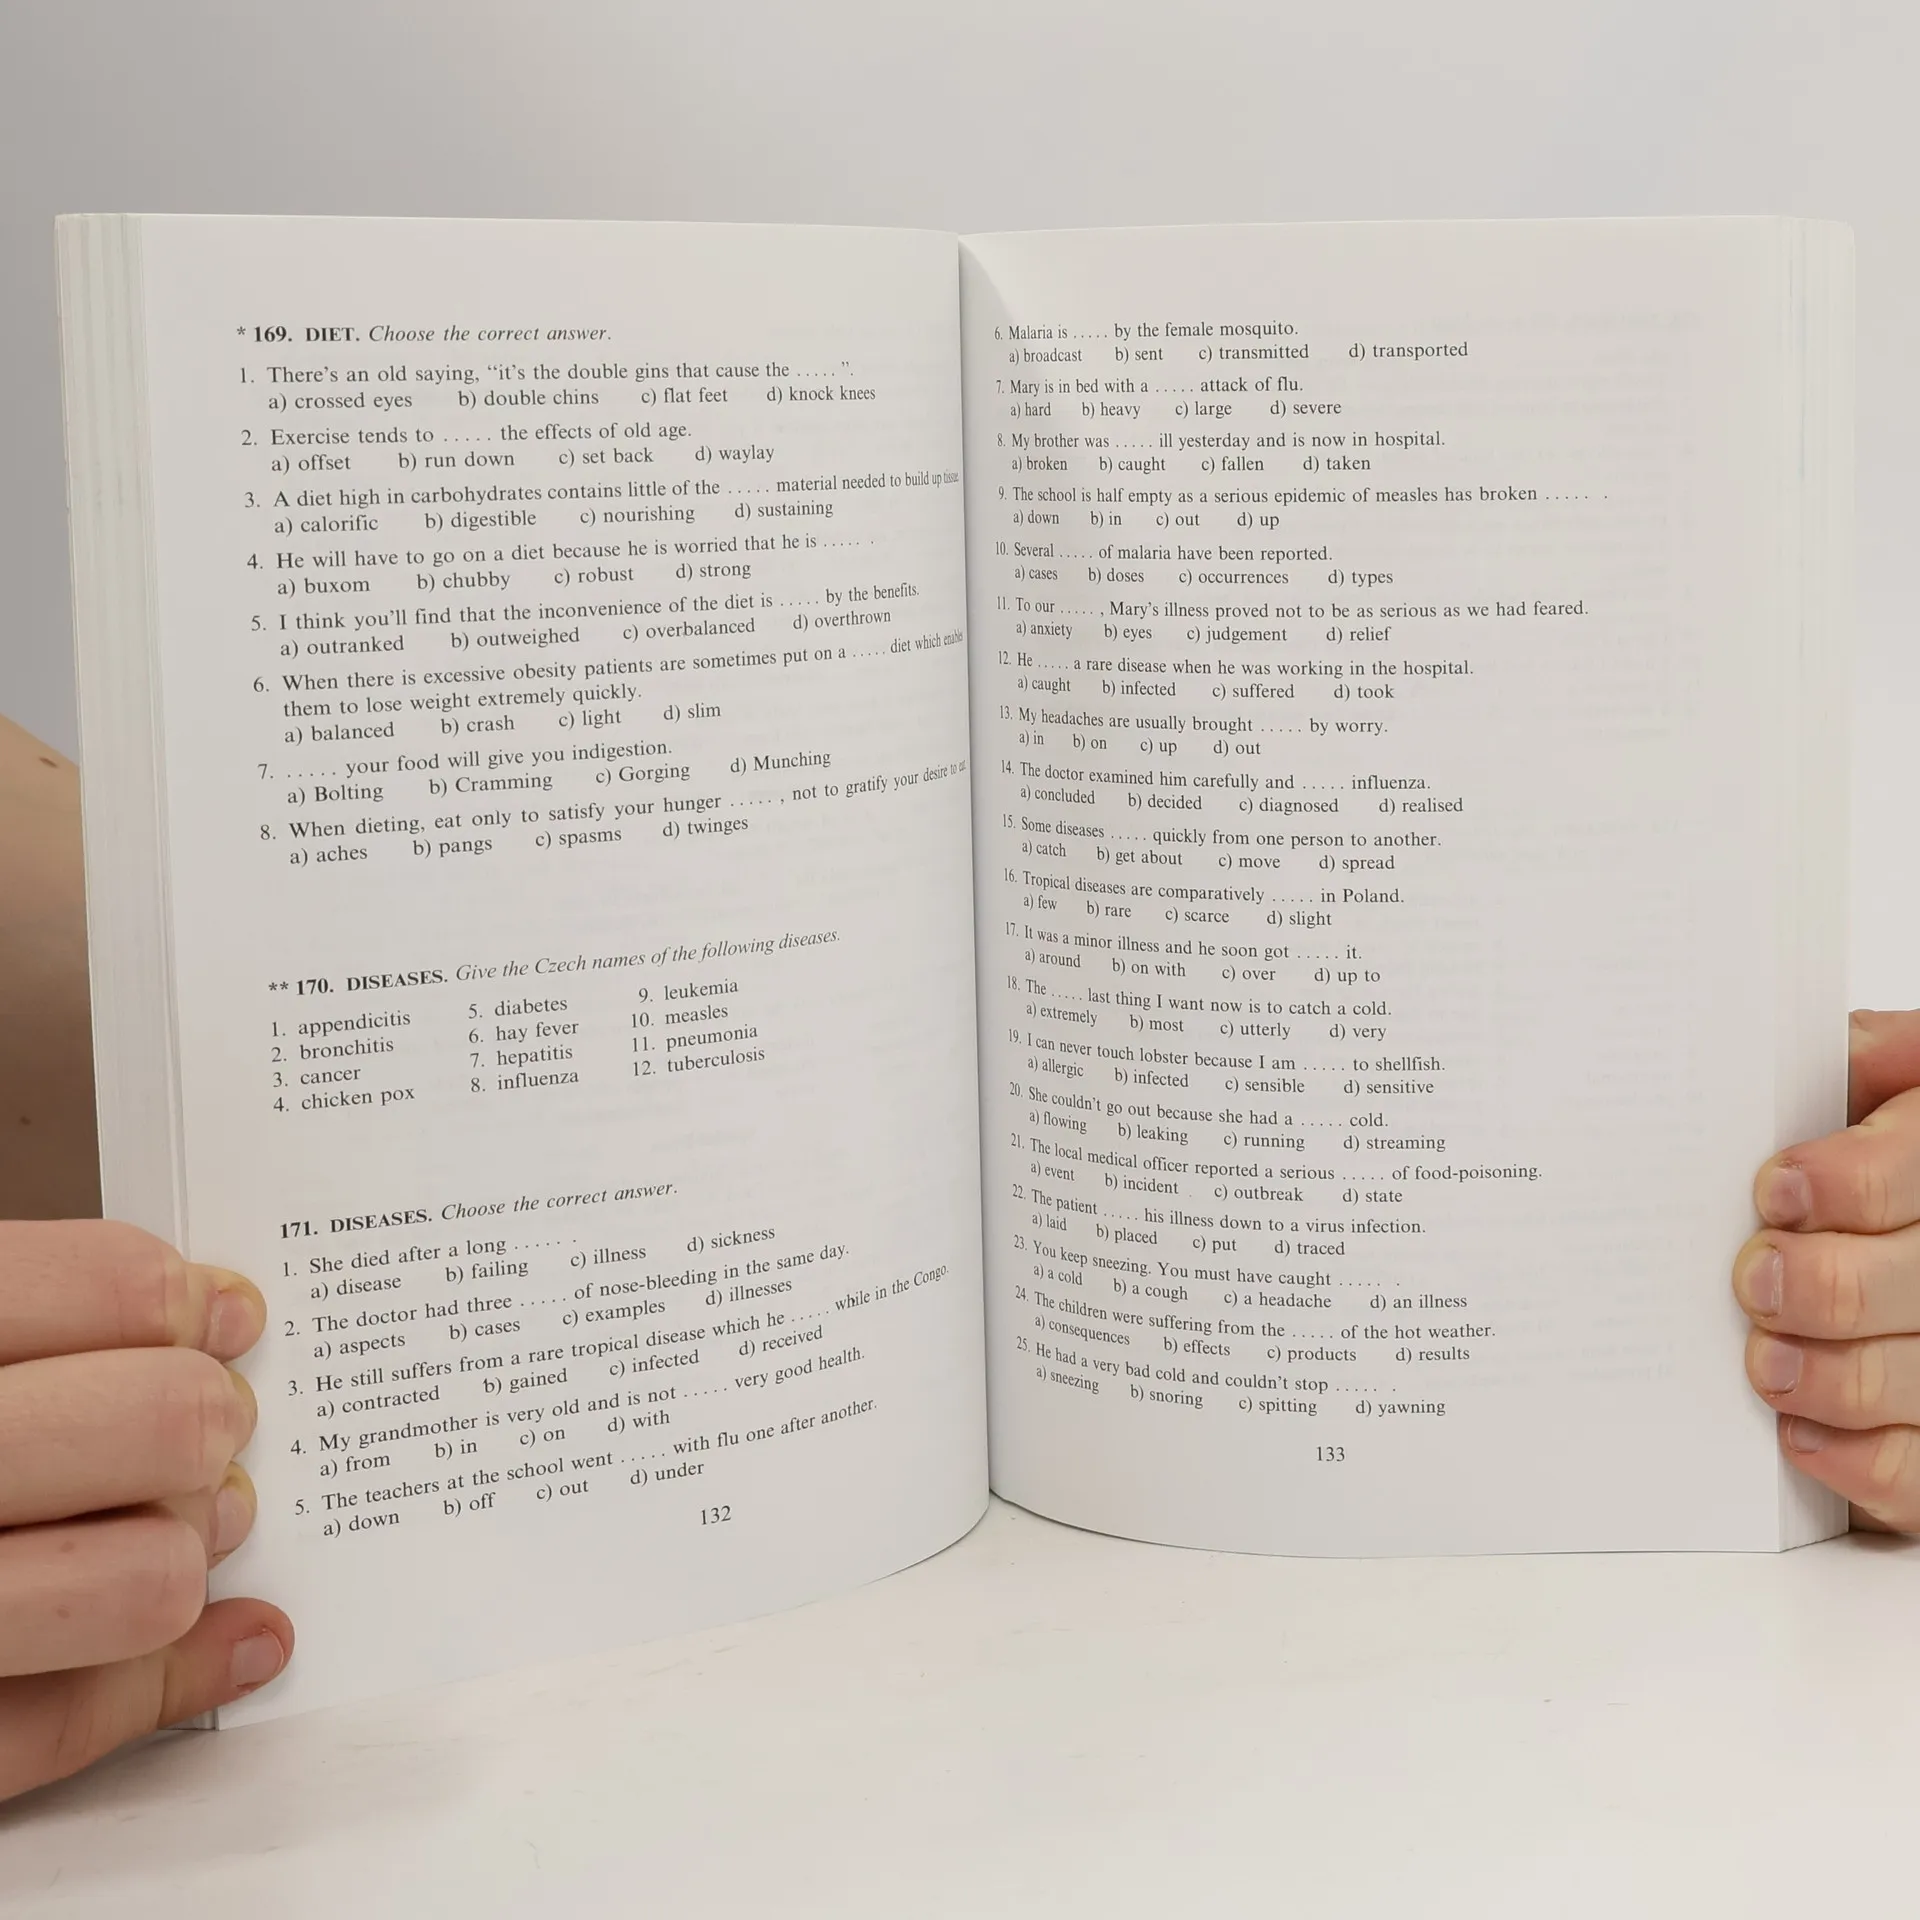 * 169. DIET. Choose the correct answer.
1. There's an old saying, “it's the double gins that cause the ..... ”.
a) crossed eyes b) double chins c) flat feet d) knock knees
2. Exercise tends to ..... the effects of old age.
a) offset b) run down c) set back d) waylay
3. A diet high in carbohydrates contains little of the ..... material needed to build up tissue
a) calorific b) digestible c) nourishing d) sustaining
4. He will have to go on a diet because he is worried that he is ..... .
a) buxom b) chubby c) robust d) strong
5. I think you'll find that the inconvenience of the diet is ..... by the benefits.
a) outranked b) outweighed c) overbalanced d) overthrown
6. When there is excessive obesity patients are sometimes put on a ..... diet which enables
them to lose weight extremely quickly.
a) balanced b) crash c) light d) slim
7. ..... your food will give you indigestion.
a) Bolting b) Cramming c) Gorging d) Munching
8. When dieting, eat only to satisfy your hunger ..... , not to gratify your desire to eat
a) aches b) pangs c) spasms d) twinges
** 170. DISEASES. Give the Czech names of the following diseases.
1. appendicitis
2. bronchitis
3. cancer
4. chicken pox
5. diabetes
6. hay fever
7. hepatitis
8. influenza
9. leukemia
10. measles
11. pneumonia
12. tuberculosis
171. DISEASES. Choose the correct answer.
1. She died after a long ..... .
a) disease b) failing c) illness d) sickness
2. The doctor had three ..... of nose-bleeding in the same day.
a) aspects b) cases c) examples d) illnesses
3. He still suffers from a rare tropical disease which he ..... while in the Congo.
a) contracted b) gained c) infected d) received
4. My grandmother is very old and is not ..... very good health.
a) from b) in c) on d) with
5. The teachers at the school went ..... with flu one after another.
a) down b) off c) out d) under
132
6. Malaria is ..... by the female mosquito.
a) broadcast b) sent c) transmitted d) transported
7. Mary is in bed with a ..... attack of flu.
a) hard b) heavy c) large d) severe
8. My brother was ..... ill yesterday and is now in hospital.
a) broken b) caught c) fallen d) taken
9. The school is half empty as a serious epidemic of measles has broken ..... .
a) down b) in c) out d) up
10. Several ..... of malaria have been reported.
a) cases b) doses c) occurrences d) types
11. To our ..... , Mary's illness proved not to be as serious as we had feared.
a) anxiety b) eyes c) judgement d) relief
12. He ..... a rare disease when he was working in the hospital.
a) caught b) infected c) suffered d) took
13. My headaches are usually brought ..... by worry.
a) in b) on c) up d) out
14. The doctor examined him carefully and ..... influenza.
a) concluded b) decided c) diagnosed d) realised
15. Some diseases ..... quickly from one person to another.
a) catch b) get about c) move d) spread
16. Tropical diseases are comparatively ..... in Poland.
a) few b) rare c) scarce d) slight
17. It was a minor illness and he soon got ..... it.
a) around b) on with c) over d) up to
18. The ..... last thing I want now is to catch a cold.
a) extremely b) most c) utterly d) very
19. I can never touch lobster because I am ..... to shellfish.
a) allergic b) infected c) sensible d) sensitive
20. She couldn't go out because she had a ..... cold.
a) flowing b) leaking c) running d) streaming
21. The local medical officer reported a serious ..... of food-poisoning.
a) event b) incident c) outbreak d) state
22. The patient ..... his illness down to a virus infection.
a) laid b) placed c) put d) traced
23. You keep sneezing. You must have caught ..... .
a) a cold b) a cough c) a headache d) an illness
24. The children were suffering from the ..... of the hot weather.
a) consequences b) effects c) products d) results
25. He had a very bad cold and couldn't stop ..... .
a) sneezing b) snoring c) spitting d) yawning
133